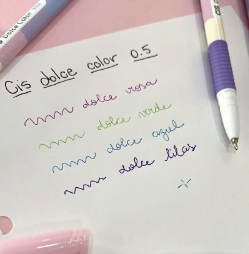 Cis dolce color 0.5
dolce rosa
dolce verde
dolce azul
dolce lilás